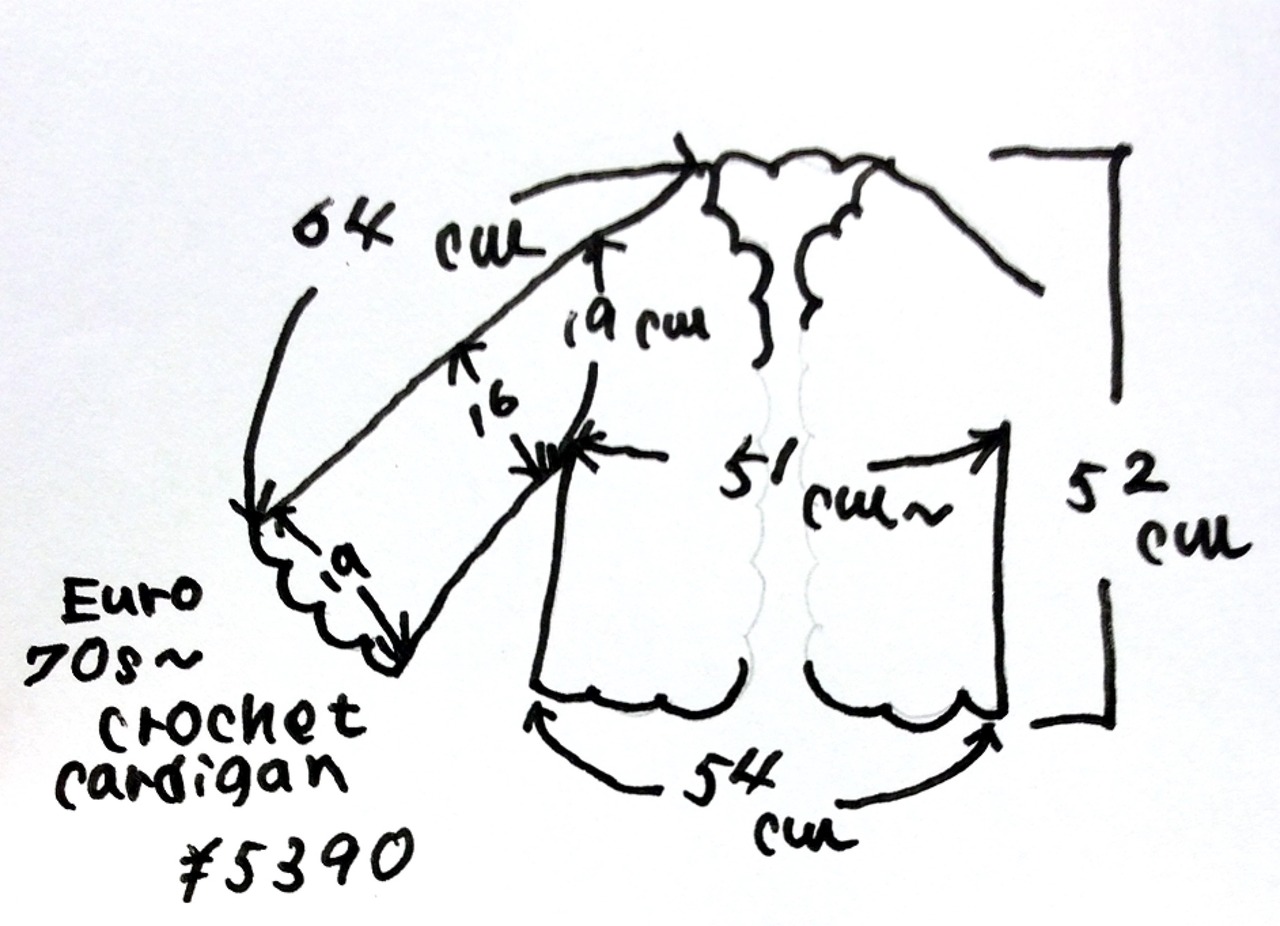 64 cm
19 cm
16
51 cm~
52 cm
19
Euro
70s~
crochet
cardigan
¥5390
54 cm